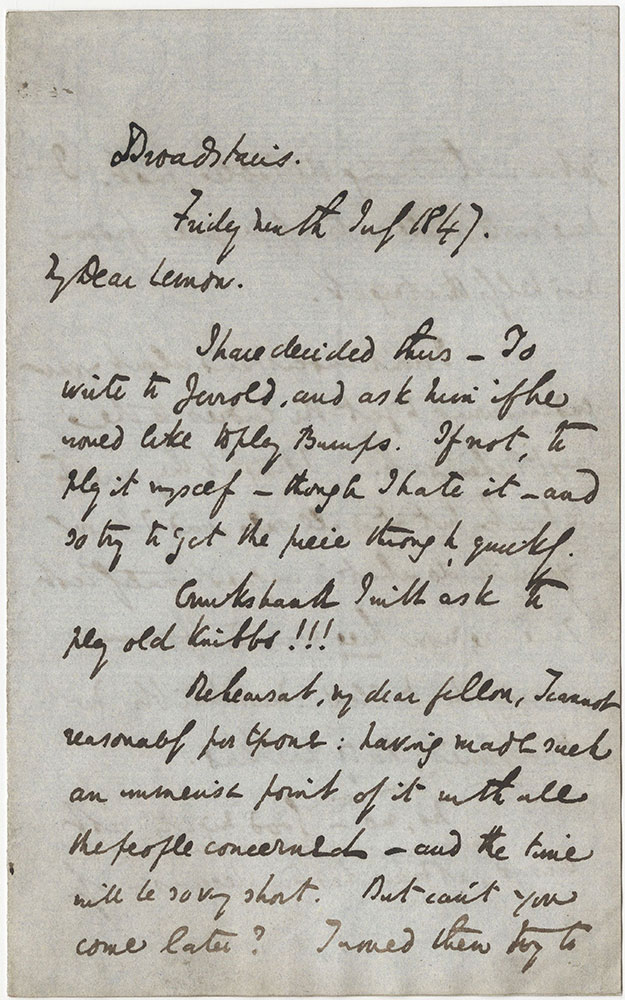 Broadstairs.
Friday ninth July 1847.
My Dear Lemon.
I have decided thus – To
write to Jerrold, and ask him if he
would like to play Bumps. If not, to
play it myself – though I hate it – and
so try to get the piece through quickly.
Cruikshank I will ask to
play old Knibbs!!!
Rehearsal, my dear fellow, I cannot
reasonably postpone: having made such
an immense point of it with all
the people concerned – and the time
will be so very short. But can't you
come later? I would then try to